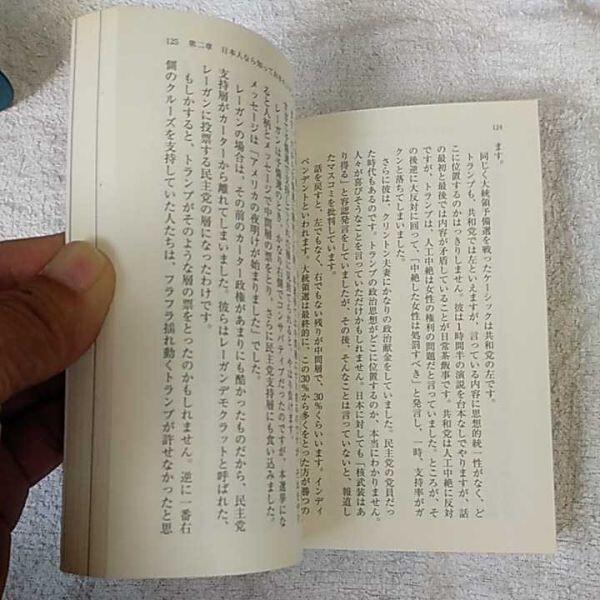 124
ます。
同じく大統領予備選を戦ったケーシックは共和党の左です。
トランプも、共和党では左といえますが、言っている内容に思想的統一性がなく、ど
こに位置するのかはっきりしません。彼は1時間半の演説を台本なしでやりますが、話
の最初と最後では内容が矛盾していることが日常茶飯事です。共和党は人工中絶に反対
ですが、トランプは、人工中絶は女性の権利の問題だと言っていました。ところが、そ
の後逆に大反対に回って、「中絶した女性は処罰すべき」と発言し、一時、支持率がガ
クンと落ちてしまいました。
さらに彼は、クリントン夫妻にかなりの政治献金をしていました。民主党の党員だっ
た時代もあるのです。トランプの政治思想がどこに位置するのか、本当にわかりません。
人々が喜びそうなことを言っていただけかもしれません。日本に対しても「核武装はあ
り得る」と容認発言をしていましたが、その後、そんなことは言っていないと、報道し
たマスコミを批判しています。
話を戻すと、左でもなく、右でもない残りが中間層で、30%くらいいます。インディ
ペンデントといわれます。大統領選は最終的に、この30%から多くをとった方が勝つの
125 第二章 日本人なら知っておき
レーガンは予備選のとき、かなり右側で、コンサバティブだったのですが、本選挙にな
ると人柄とメッセージで中間層の票をとり、さらに民主党支持層にも食い込みました。
メッセージは「アメリカの夜明けが始まりました」でした。
レーガンの場合は、その前のカーター政権があまりにも酷かったものだから、民主党
支持層がカーターから離れてしまいました。彼らはレーガンデモクラットと呼ばれた、
レーガンに投票する民主党の層になったわけです。
もしかすると、トランプがそのような層の票をとったのかもしれません。逆に一番右
側のクルーズを支持していた人たちは、フラフラ揺れ動くトランプが許せなかったと思